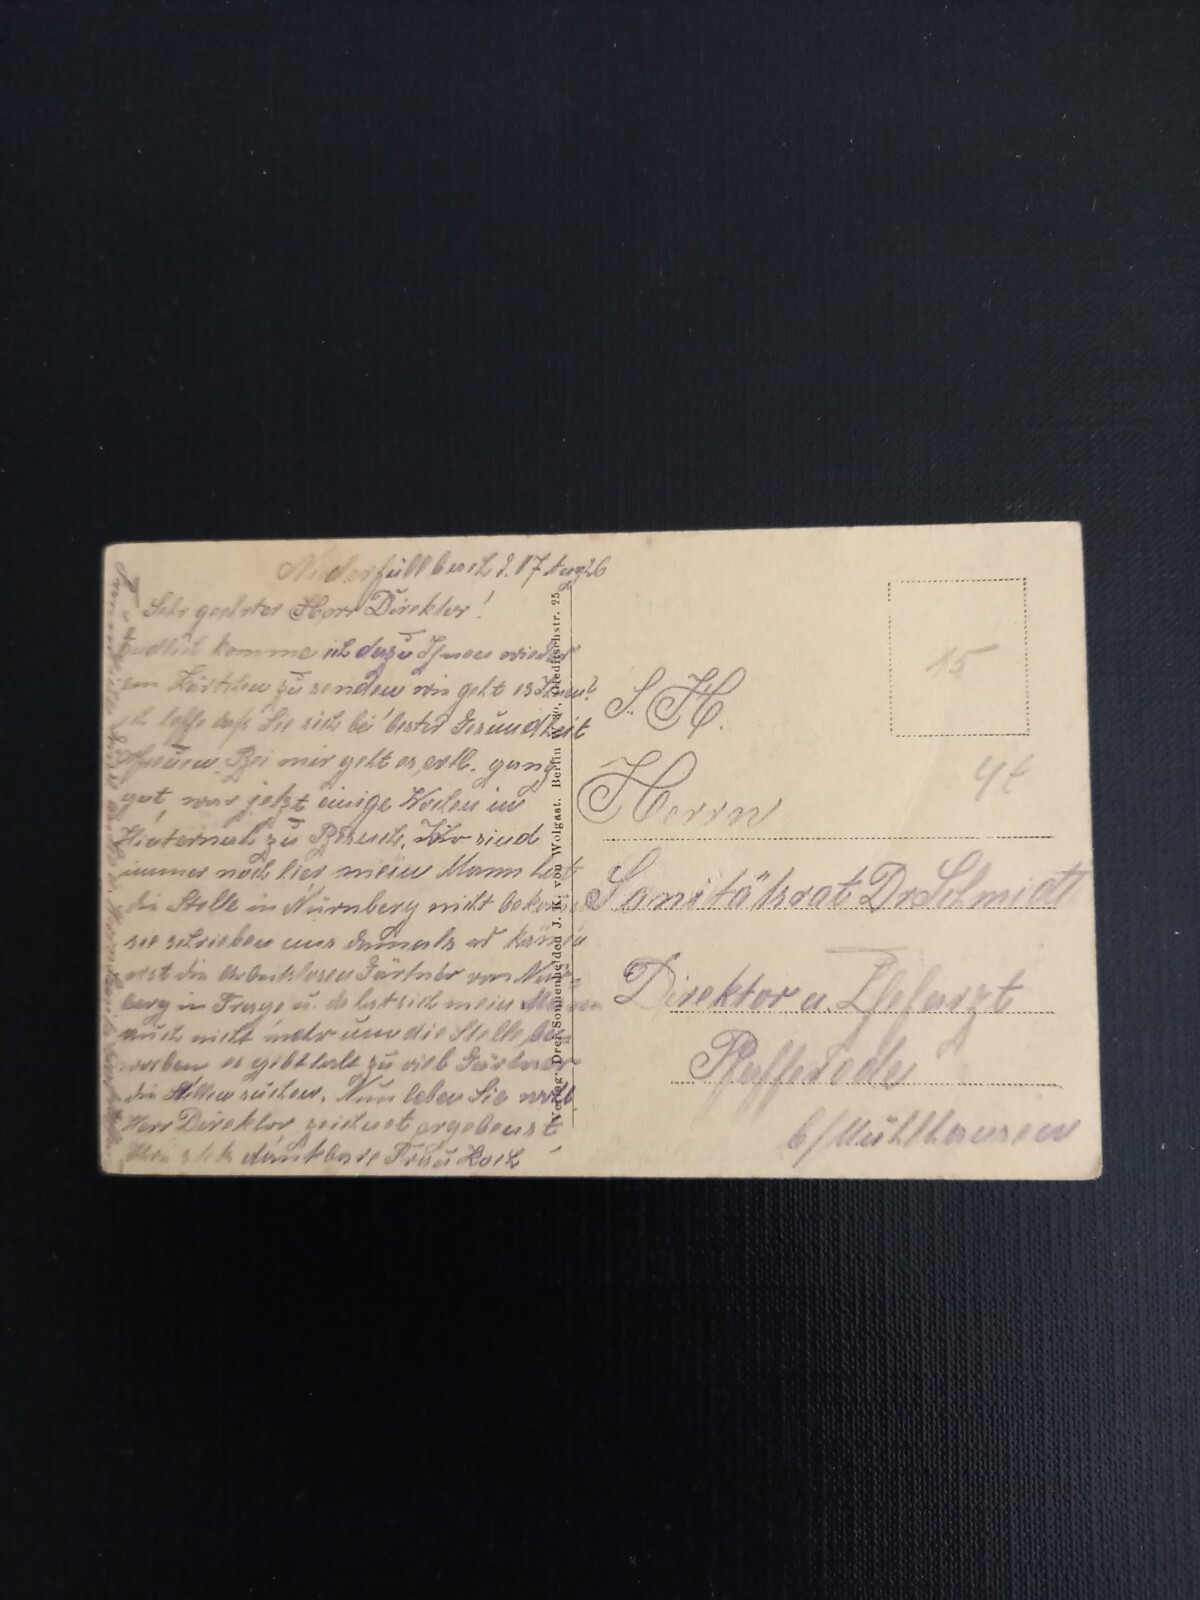 Niederfüllbach d. 17 Aug 26
Sehr geehrter Herr Direktor!
Endlich komme ich dazu Ihnen wieder
ein Kärtchen zu senden wie geht es Ihnen?
ich hoffe daß Sie sich bei bester Gesundheit
erfreuen. Bei mir geht es, ganz
gut, war jetzt einige Wochen in
Hinternah zu Besuch. Wir sind
immer noch hier mein Mann hat
die Stelle in Nürnberg nicht bekommen
sie schrieben uns damals es kämen
erst die arbeitslosen Gärtner von Nürn-
berg in Frage u. da hat sich mein Mann
auch nicht mehr um die Stelle be-
worben es gibt halt zu viele Gärtner
die Stellen suchen. Nun leben Sie wohl
Herr Direktor zeichnet ergebenst
Ihre stets dankbare Frau Koch
Verlag: Drei Sonnenhelden J. K. von Wolgast. Berlin Gleditschstr. 25.
15
4 t
S. H.
Herrn
Sanitätsrat Dr Schmidt
Direktor u. Chefarzt
Pfafferode
b/Mühlhausen